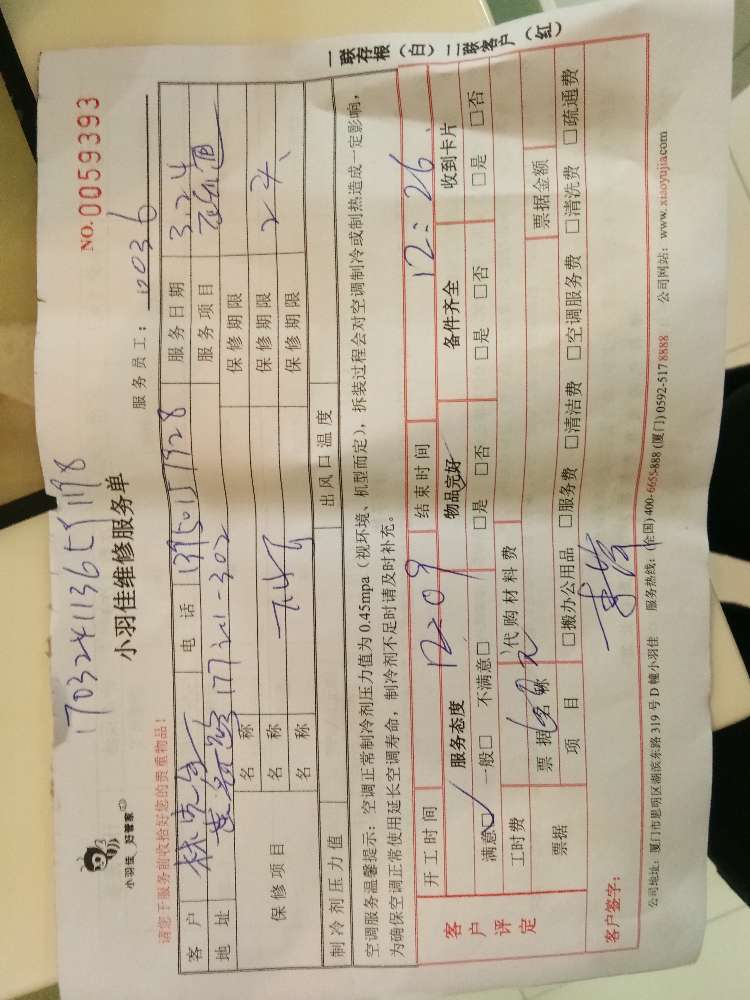 1703241136591198
小羽佳 好管家
小羽佳维修服务单
NO.0059393
服务员工: 10036
请您于服务前收拾好您的贵重物品!
客户 林先生 电话 13950151928 服务日期 3.24
地址 177 201-302 服务项目
保修项目 名称 保修期限
名称 保修期限
名称 保修期限
制冷剂压力值 出风口温度
空调服务温馨提示: 空调正常制冷剂压力值为0.45mpa(视环境、机型而定),拆装过程会对空调制冷或制热造成一定影响,
为确保空调正常使用延长空调寿命,制冷剂不足时请及时补充。
一联存根(白)二联客户(红)
开工时间 12:09 结束时间 12:26
客户评定 服务态度 物品完好 备件齐全 收到卡片
满意□ 一般□ 不满意□ □是 □否 □是 □否 □是 □否
工时费 代购材料费
票据 票据名称 票据金额
项目 □搬办公用品 □服务费 □清洁费 □空调服务费 □清洗费 □疏通费
客户签字:
公司地址: 厦门市思明区湖滨东路319号D幢小羽佳 服务热线: (全国)400-6655-888 (厦门)0592-5178888 公司网站: www.xiaoyujia.com